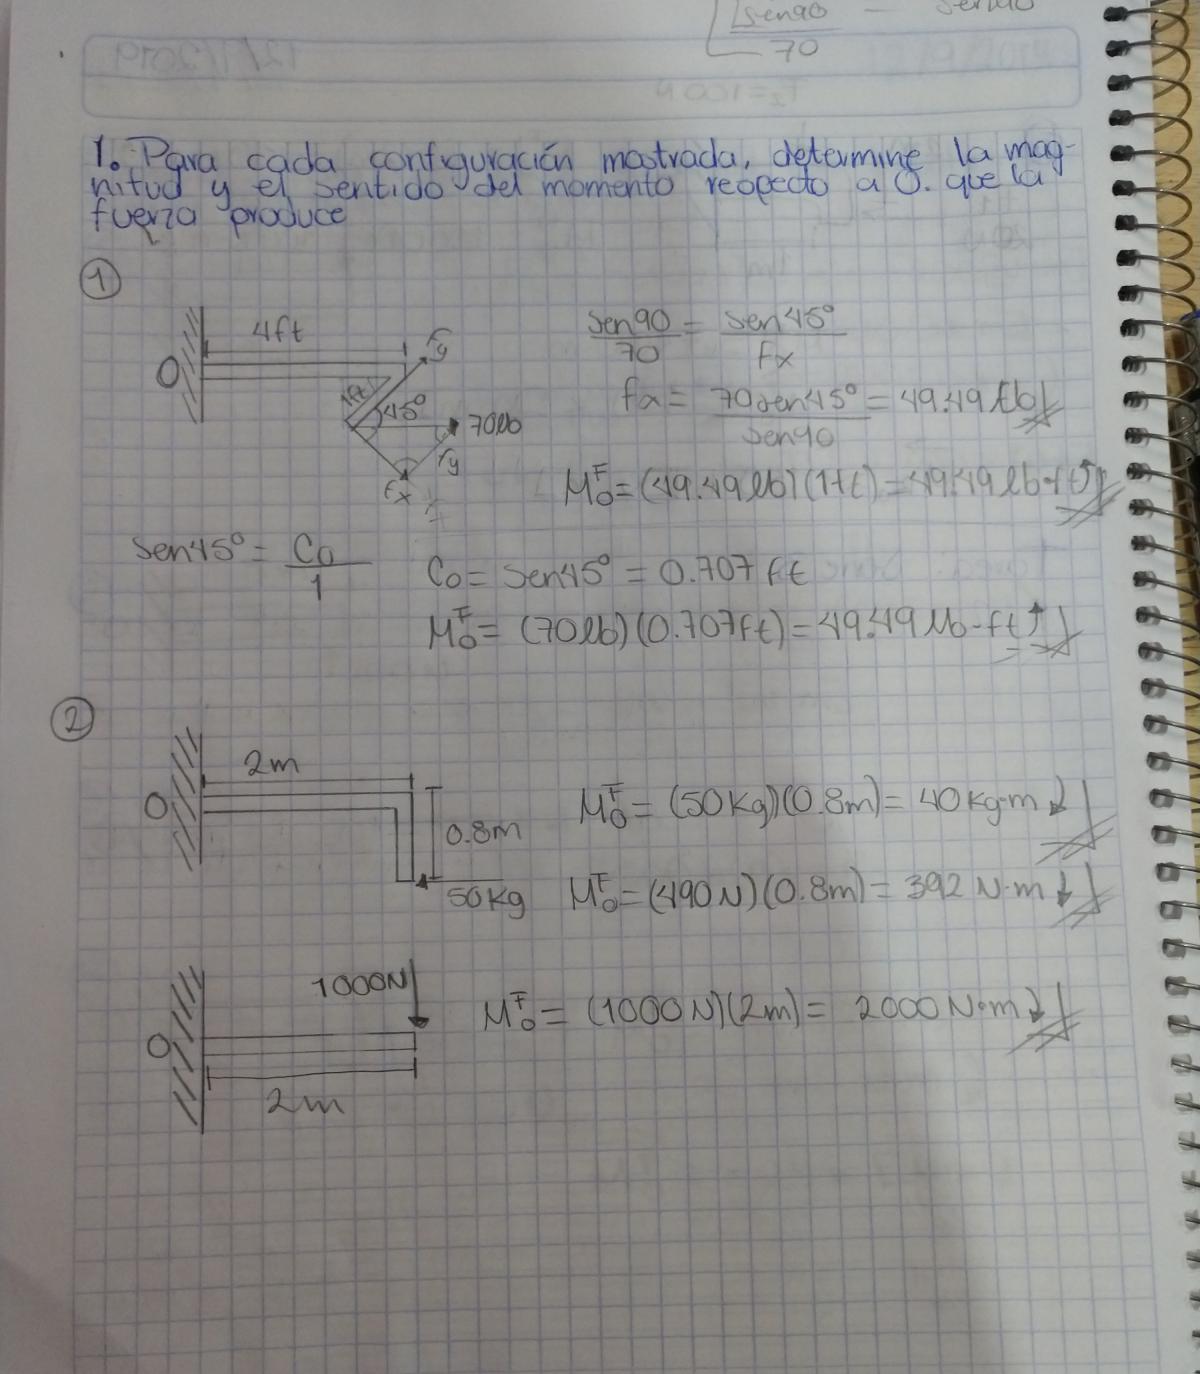 sen90
70
1. Para cada configuración mostrada, determine la mag-
nitud y el sentido del momento respecto a O. que la
fuerza produce
1
4ft
O
Fy
1ft
45°
70lb
Fy
Fx
sen90 = sen45°
70 Fx
fx = 70sen45° = 49.49 lb
sen90
M_O^F = (49.49lb)(1ft) = 49.49 lb-ft
sen45° = Co
1
Co = sen45° = 0.707 ft
M_O^F = (70lb)(0.707ft) = 49.49 lb-ft
2
2m
O
0.8m
50kg
M_O^F = (50kg)(0.8m) = 40kg·m
M_O^F = (490N)(0.8m) = 392 N·m
1000N
O
2m
M_O^F = (1000N)(2m) = 2000N·m